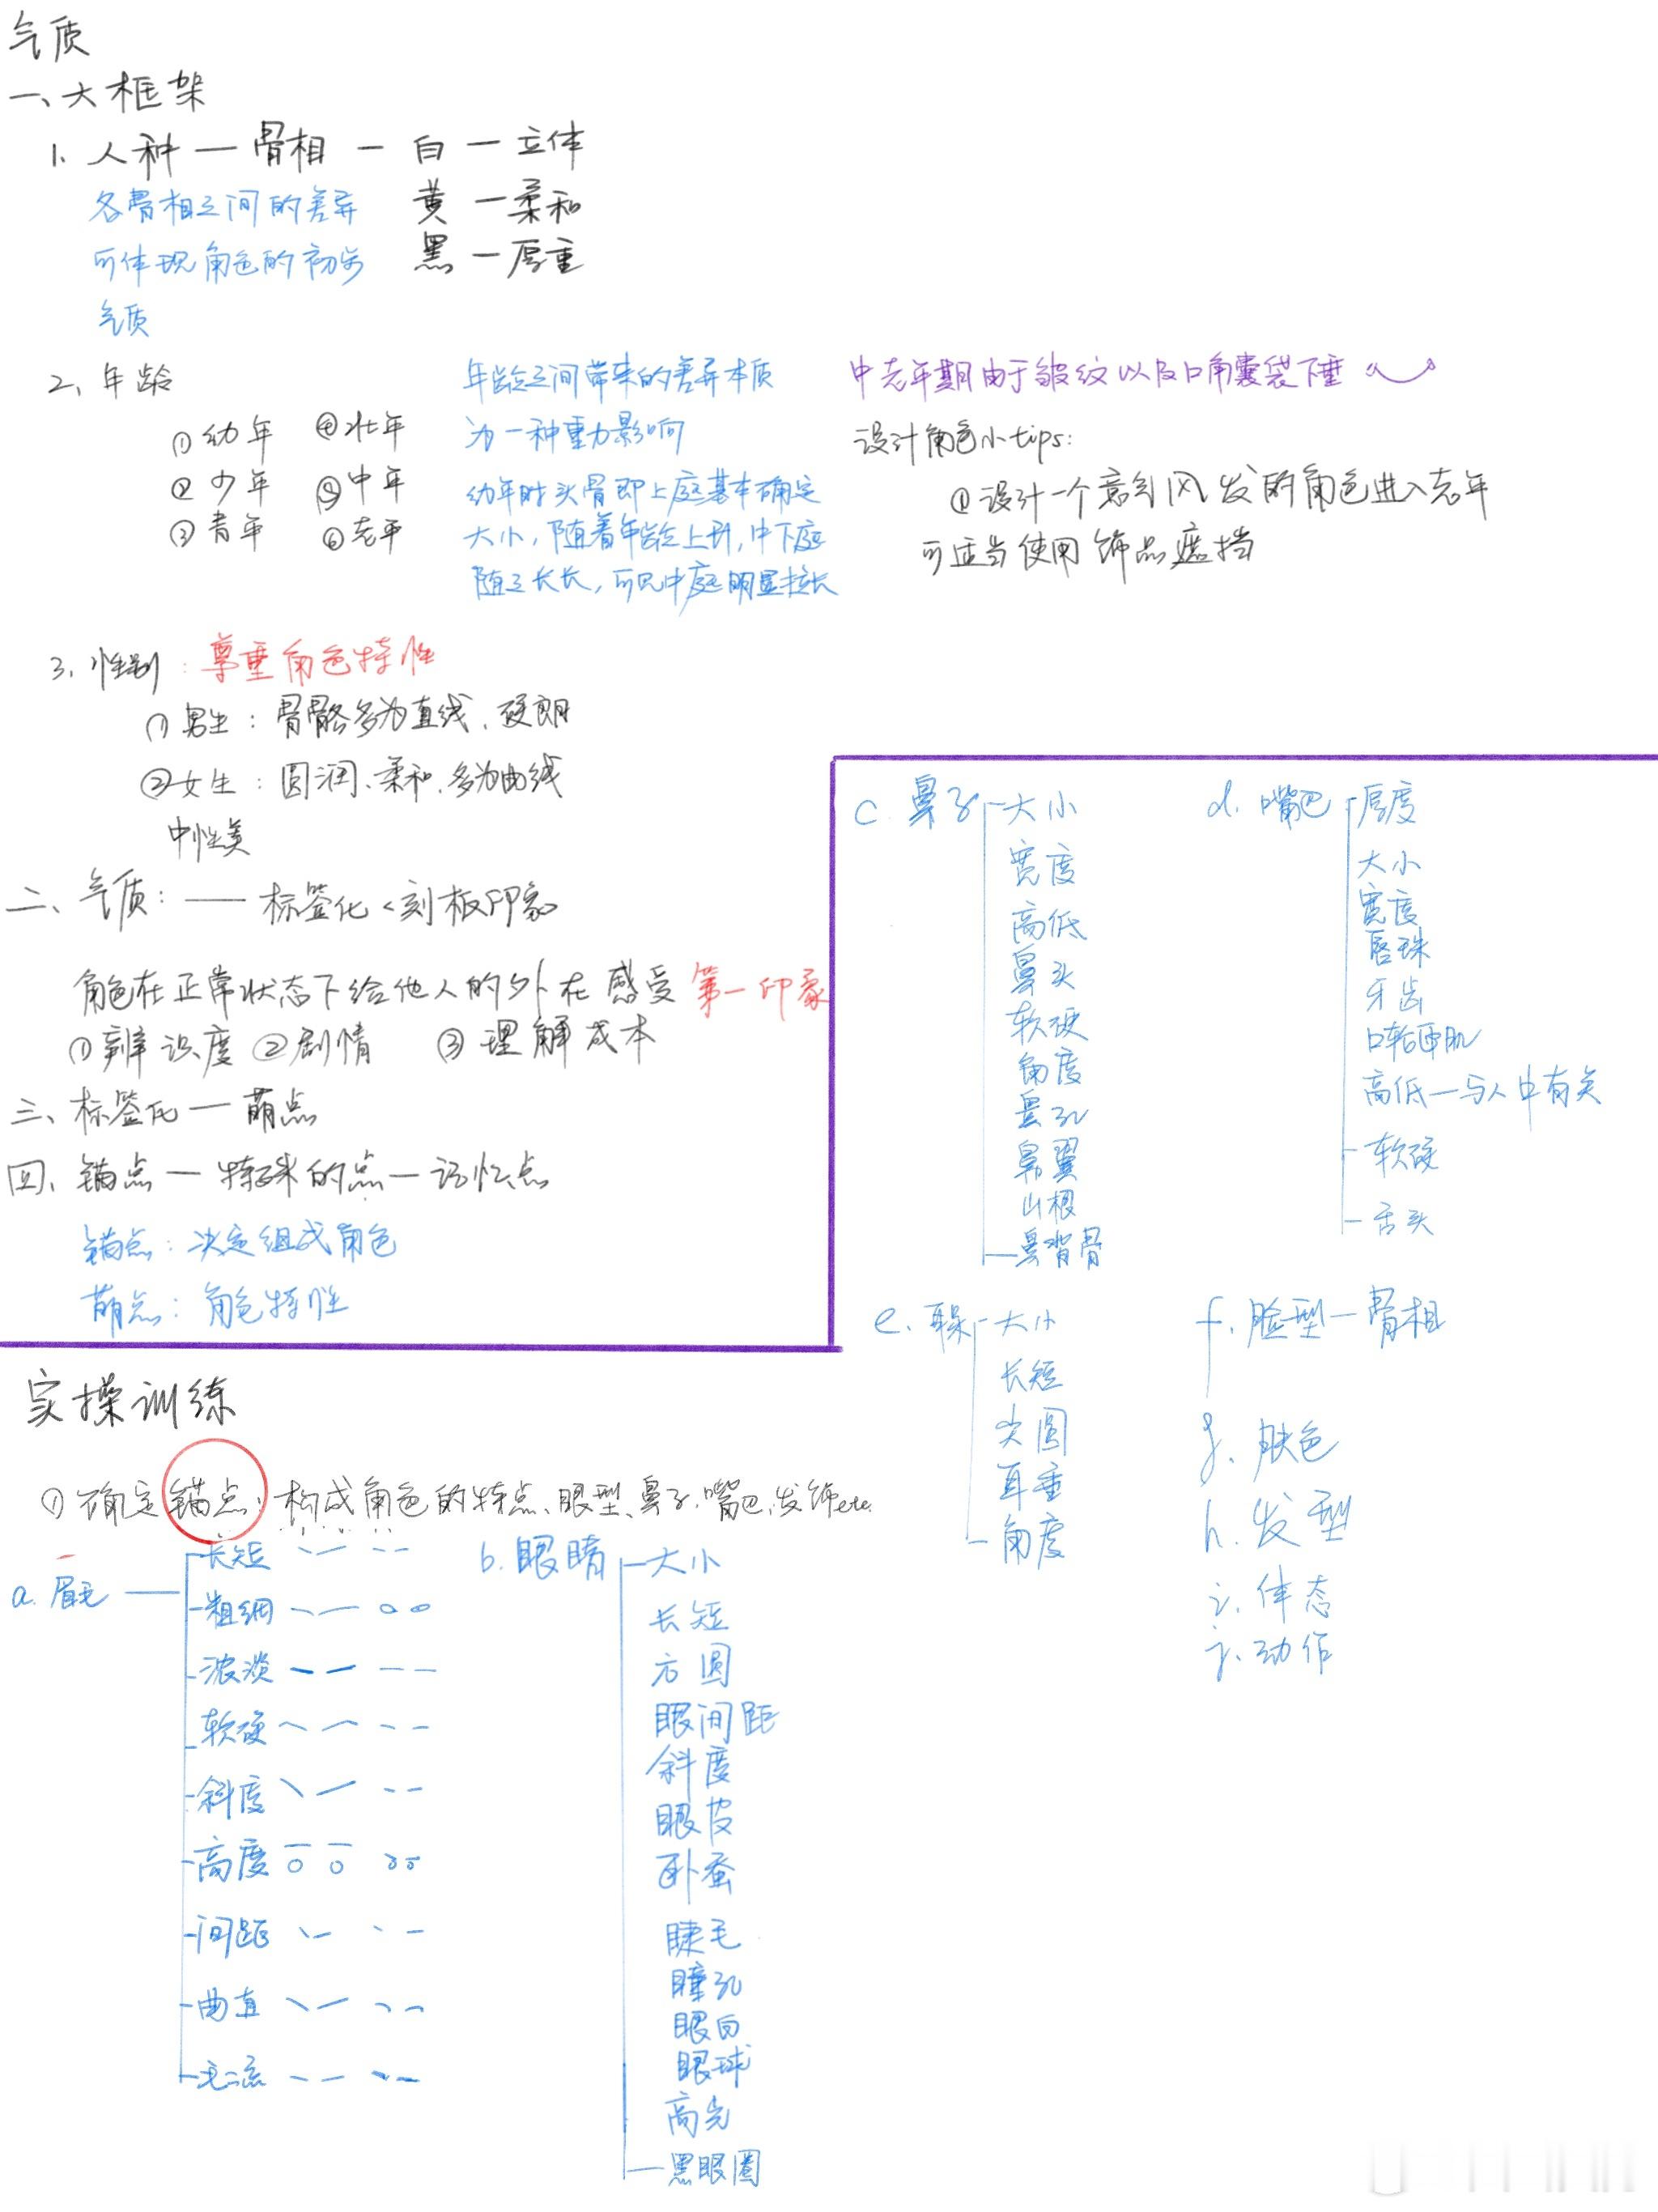 气质
一、大框架
1. 人种 — 骨相 — 白 — 立体
黄 — 柔和
黑 — 厚重
各骨相之间的差异
可体现角色的初步
气质
2、年龄
①幼年 ④壮年
②少年 ⑤中年
③青年 ⑥老年
年龄之间带来的差异本质
为一种重力影响
幼年时头骨即上庭基本确定
大小,随着年龄上升,中下庭
随之长长,可见中庭明显拉长
中老年期由于皱纹以及口角囊袋下垂
设计角色小tips:
①设计一个意气风发的角色进入老年
可适当使用饰品遮挡
3、性别:尊重角色特性
①男生:骨骼多为直线、硬朗
②女生:圆润、柔和、多为曲线
中性美
二、气质:—— 标签化<刻板印象
角色在正常状态下给他人的外在感受 第一印象
①辨识度 ②剧情 ③理解成本
三、标签化 — 萌点
四、锚点 — 特殊的点 — 记忆点
锚点:决定组成角色
萌点:角色特性
实操训练
①确定锚点:构成角色的特点、眼型、鼻子、嘴巴、发饰etc.
a. 眉毛
长短
粗细
浓淡
软硬
斜度
高度
间距
曲直
毛流
b. 眼睛
大小
长短
方圆
眼间距
斜度
眼皮
卧蚕
睫毛
瞳孔
眼白
眼球
高光
黑眼圈
c. 鼻子
大小
宽度
高低
鼻头
软硬
角度
鼻孔
鼻翼
山根
鼻背骨
d. 嘴巴
厚度
大小
宽度
唇珠
牙齿
口轮匝肌
高低—与人中有关
软硬
舌头
e. 耳朵
大小
长短
尖圆
耳垂
角度
f. 脸型 — 骨相
g. 肤色
h. 发型
i. 体态
j. 动作